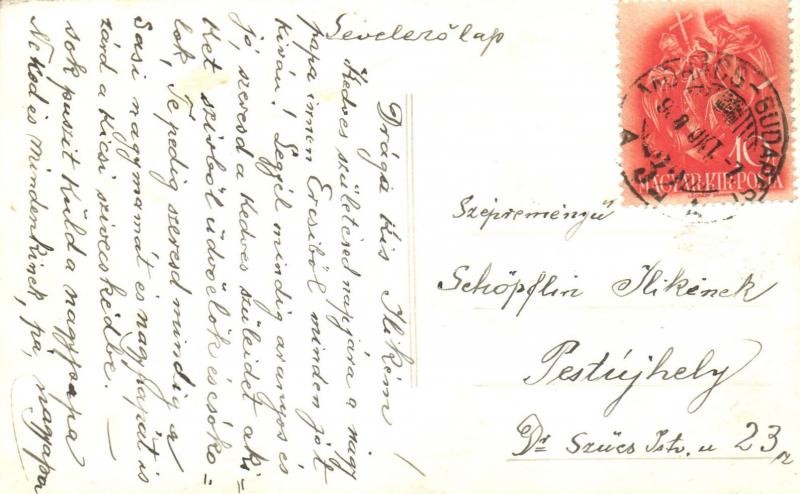 Levelezőlap
Drága kis Ilikém!
Kedves születésed napjára a nagy
papa innen Ercsiből minden jót
kíván! Legyél mindig aranyos és
jó, szeresd a kedves szüleidet aki=
ket szívből üdvözlök és csóko=
lok, Te pedig szeresd mindig a
Sasi nagymamát és nagypapát is
zárd a kicsi szívecskédbe. —
sok puszit küld a nagypapa
Neked és mindenkinek, pá, nagyapa
10
MAGYAR·KIR·POSTA
BUDAPEST
Szépreményű
Schöpflin Ilikének
Pestújhely
Dr Szücs Istv. u 23